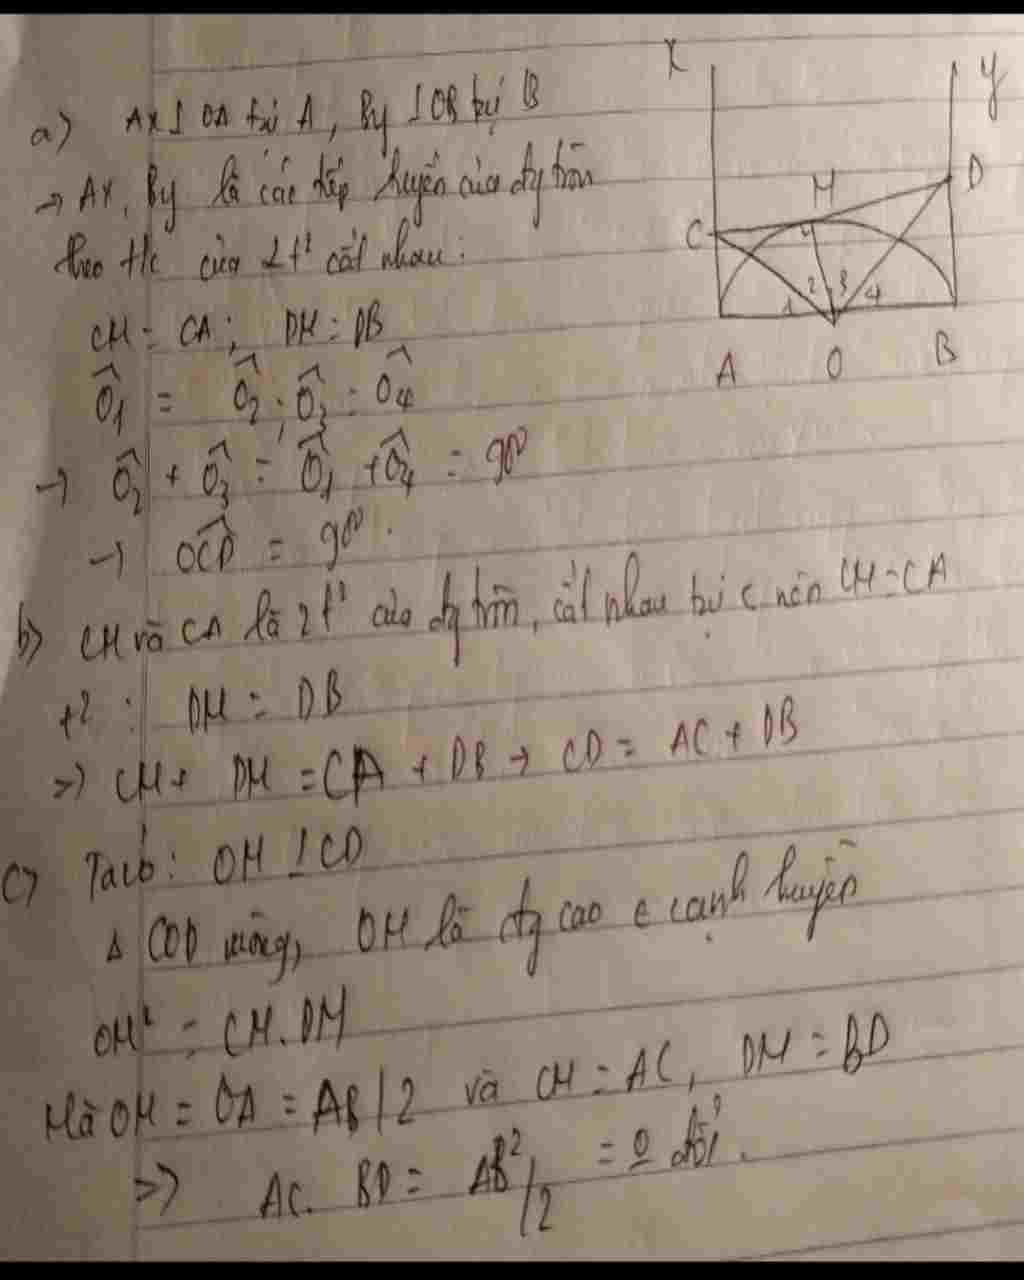 a) Ax ⊥ OA tại A, By ⊥ OB tại B
→ Ax, By là các tiếp tuyến của đg tròn
theo t/c của 2 t² cắt nhau:
CM = CA; DM = DB
Ô1 = Ô2; Ô3 = Ô4
→ Ô2 + Ô3 = Ô1 + Ô4 = 90⁰
→ OCD = 90⁰.
b) CM và CA là 2 t² của đg tròn, cắt nhau tại C nên CM = CA
+² : DM = DB
=> CM + DM = CA + DB → CD = AC + DB
c) Ta có: OM ⊥ CD
Δ COD vuông, OM là đg cao cạnh huyền
OM² = CM.DM
Mà OM = OA = AB/2 và CM = AC, DM = BD
=> AC. BD = AB²/2 = 0 đổi.
x
y
M
D
C
1 2 3 4
A O B